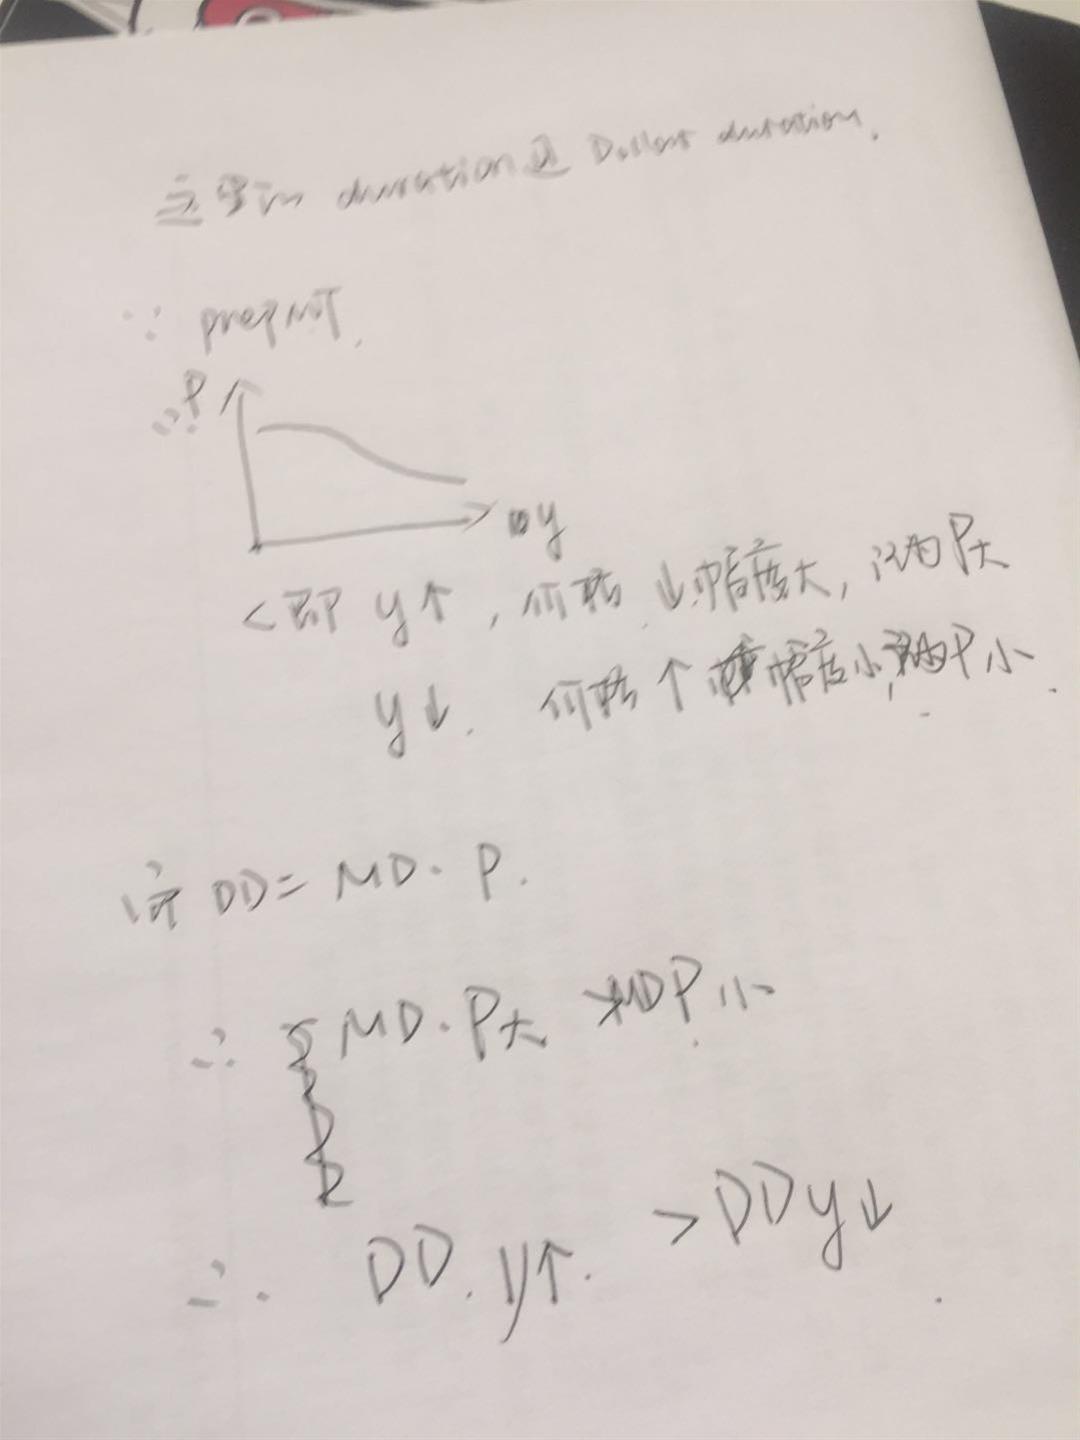 这里的 duration 是 Dollar duration.
∵ prepMT.
∴ P
y
<即 y↑, 价格 ↓幅度大, 认为 P大
y↓. 价格 ↑ 幅度小, 认为 P小.
DD = MD · P.
∴ MD · P大 > MD P小.
∴ DD. y↑. > DD y↓